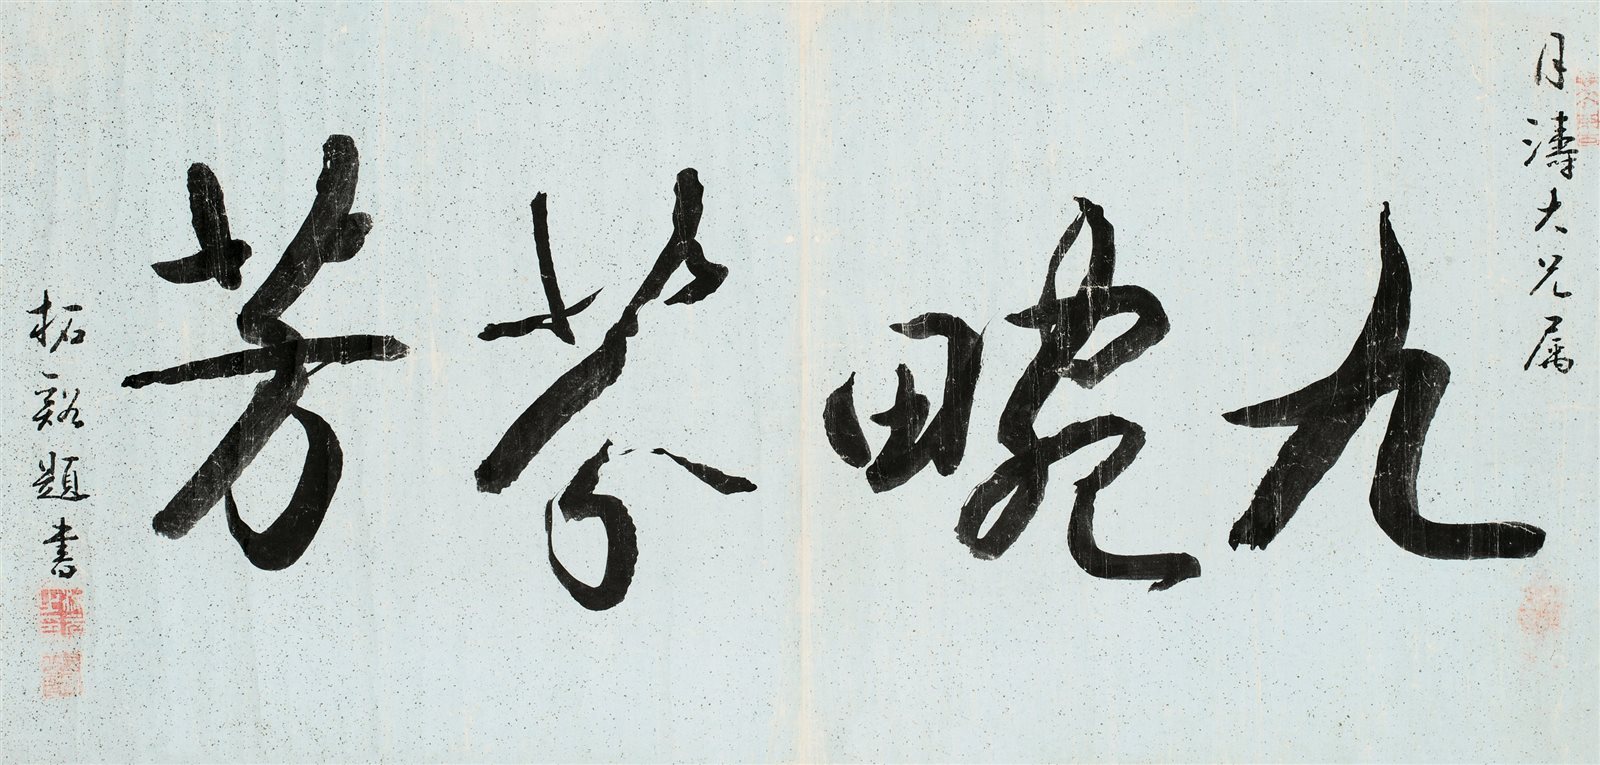 月濤大兄属
九畹芬芳
柘谿題書